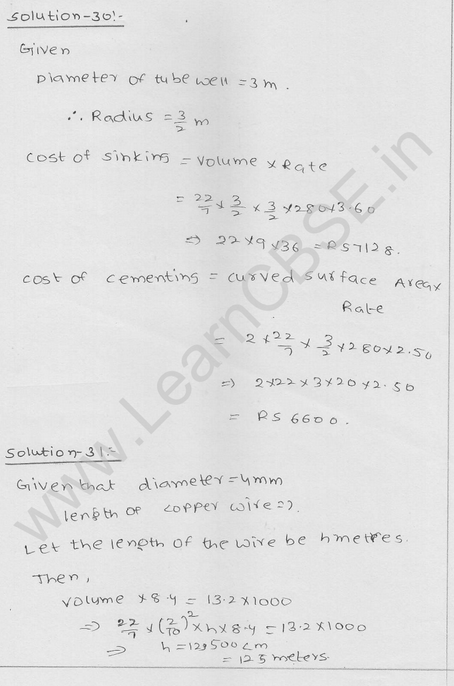 Solution-30:-
Given
Diameter of tube well = 3 m.
∴ Radius = 3/2 m
cost of sinking = volume x Rate
= 22/7 x 3/2 x 3/2 x 280 x 3.60
⇒ 22 x 9 x 36 = RS 7128.
cost of cementing = curved surface Area x
Rate
= 2 x 22/7 x 3/2 x 280 x 2.50
⇒ 2 x 22 x 3 x 20 x 2.50
= RS 6600.
Solution-31:-
Given that diameter = 4mm
length of copper wire =?
Let the length of the wire be h metres.
Then,
volume x 8.4 = 13.2 x 1000
⇒ 22/7 x (2/10)² x h x 8.4 = 13.2 x 1000
⇒ h = 12500 cm
= 125 meters.
www.LearnCBSE.in